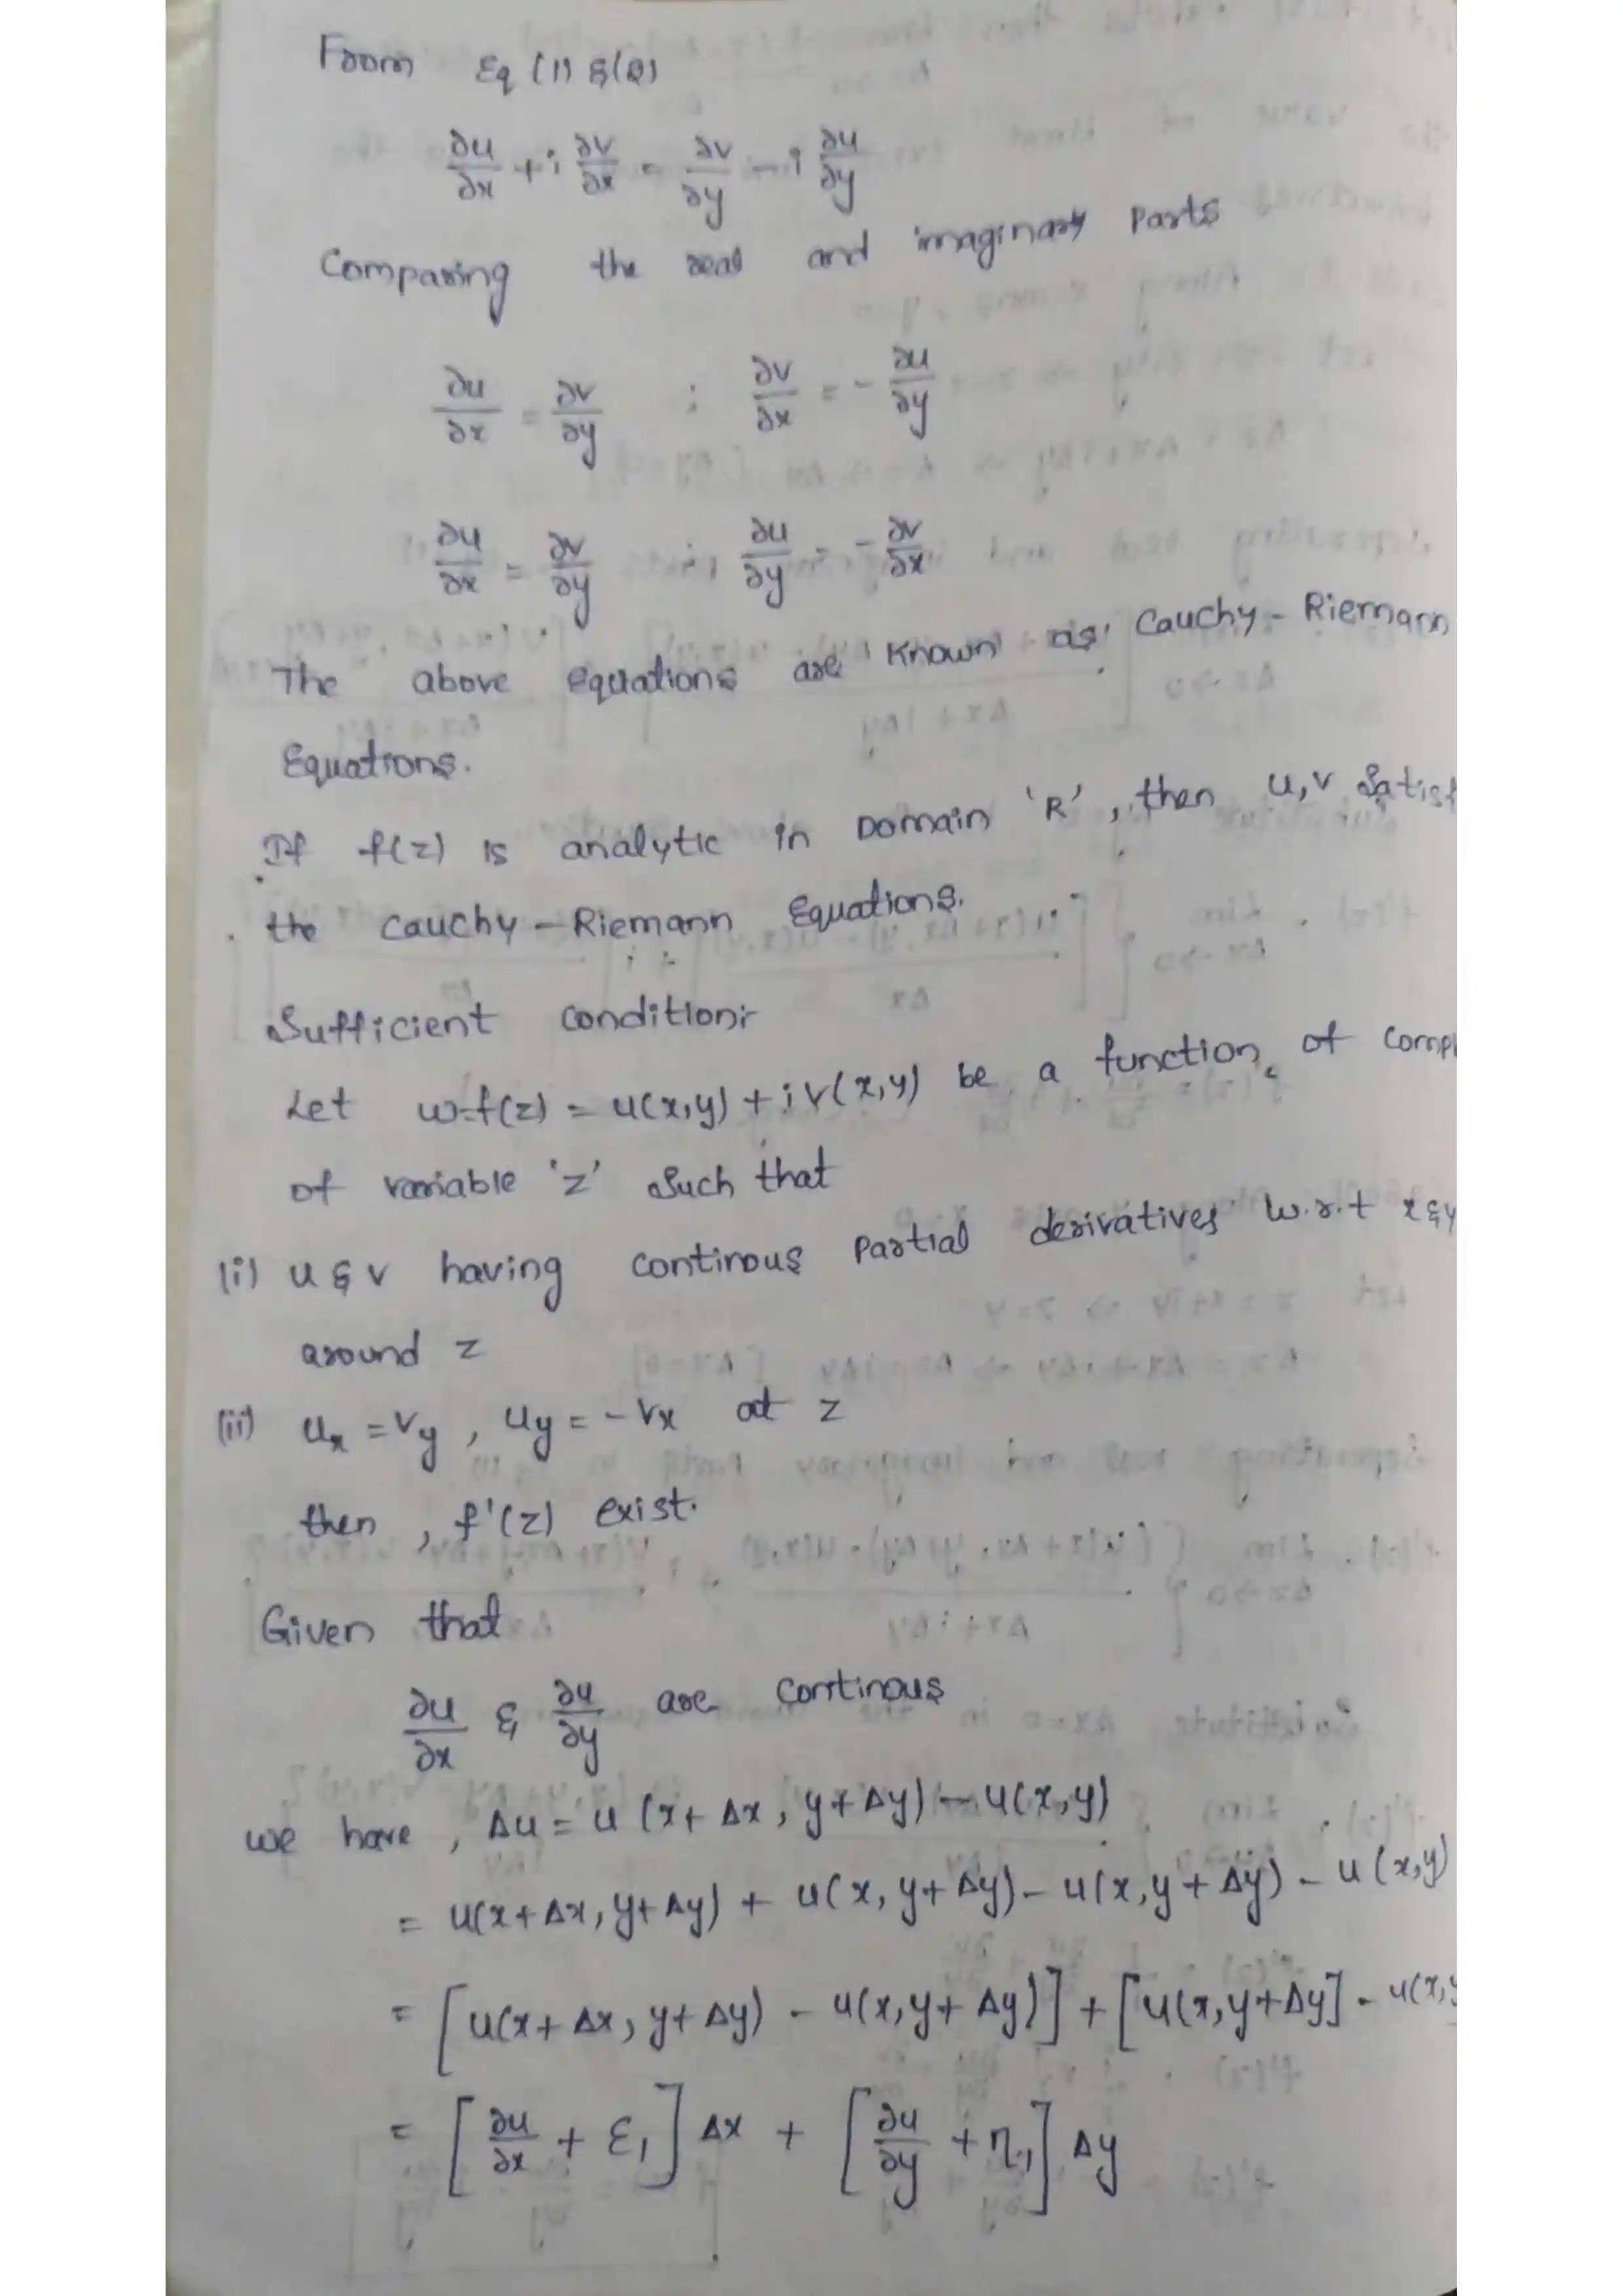 From Eq (1) & (2)
∂u/∂x + i ∂v/∂x = ∂v/∂y - i ∂u/∂y
Comparing the real and imaginary Parts
∂u/∂x = ∂v/∂y ; ∂v/∂x = - ∂u/∂y
∂u/∂x = ∂v/∂y ; ∂u/∂y = - ∂v/∂x
The above equations are known as Cauchy-Riemann
Equations.
If f(z) is analytic in Domain 'R', then u,v Satisf
the Cauchy-Riemann Equations.
Sufficient condition:-
Let w=f(z) = u(x,y) + iv(x,y) be a function of compl
of variable 'z' such that
(i) u & v having continous Partial derivatives w.r.t x&y
around z
(ii) ux = vy, uy = -vx at z
then, f'(z) exist.
Given that
∂u/∂x & ∂u/∂y are continous
we have, Δu = u(x+Δx, y+Δy) - u(x,y)
= u(x+Δx, y+Δy) + u(x, y+Δy) - u(x, y+Δy) - u(x,y)
= [u(x+Δx, y+Δy) - u(x, y+Δy)] + [u(x, y+Δy] - u(x,y
= [∂u/∂x + ε₁] Δx + [∂u/∂y + η₁] Δy